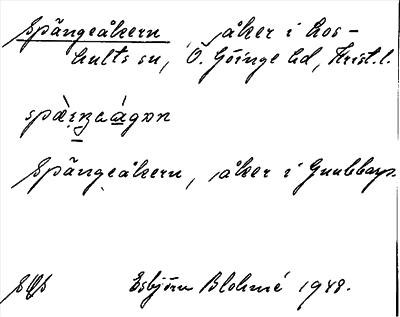 Spångeåkern, åker i Los-
hults sn, Ö. Göinge hd, Krist. l.
Spångeåkern, åker i Gubbarp.
Esbjörn Blohmé 1948.